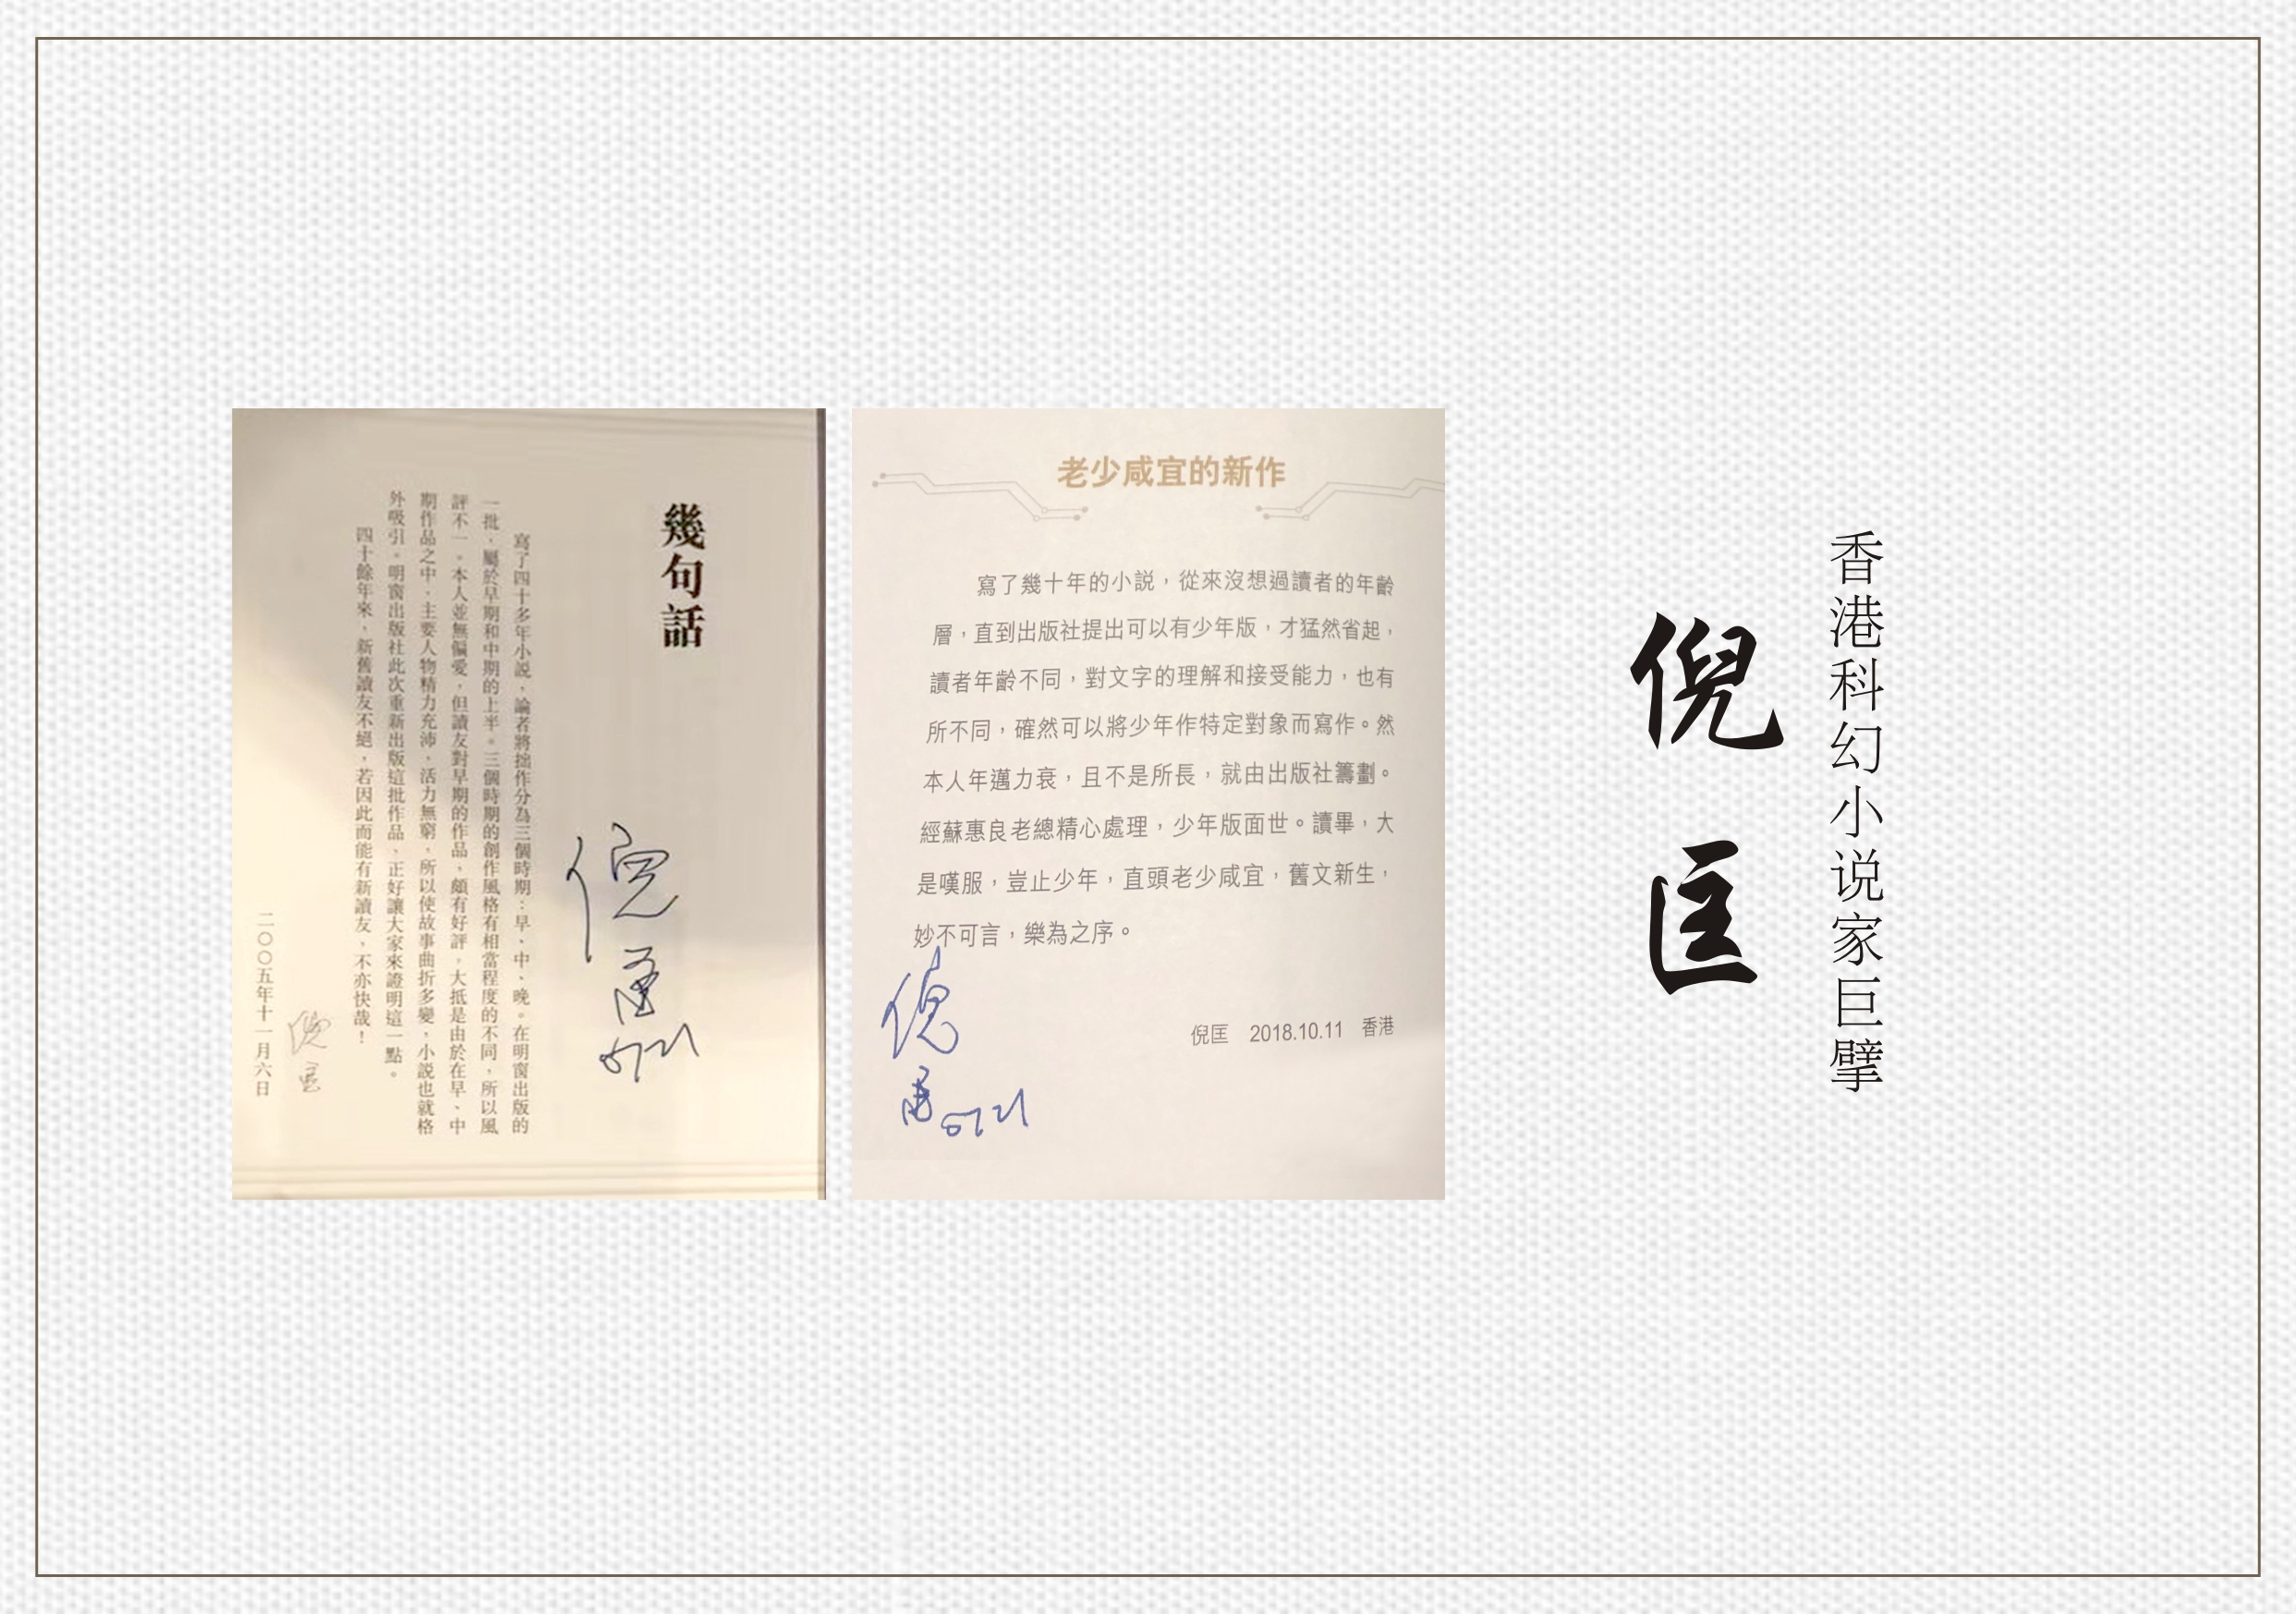 香港科幻小说家巨擘
倪匡
幾句話
寫了四十多年小説，論者將拙作分為三個時期：早、中、晚。在明窗出版的
一批，屬於早期和中期的上半。三個時期的創作風格有相當程度的不同，所以風
評不一。本人並無偏愛，但讀友對早期的作品，頗有好評，大抵是由於在早、中
期作品之中，主要人物精力充沛，活力無窮，所以使故事曲折多變，小説也就格
外吸引。明窗出版社此次重新出版這批作品，正好讓大家來證明這一點。
四十餘年來，新舊讀友不絕，若因此而能有新讀友，不亦快哉！
倪匡
二〇〇五年十一月六日
倪匡
老少咸宜的新作
寫了幾十年的小説，從來沒想過讀者的年齡
層，直到出版社提出可以有少年版，才猛然省起，
讀者年齡不同，對文字的理解和接受能力，也有
所不同，確然可以將少年作特定對象而寫作。然
本人年邁力衰，且不是所長，就由出版社籌劃。
經蘇惠良老總精心處理，少年版面世。讀畢，大
是嘆服，豈止少年，直頭老少咸宜，舊文新生，
妙不可言，樂為之序。
倪匡 2018.10.11 香港
倪匡